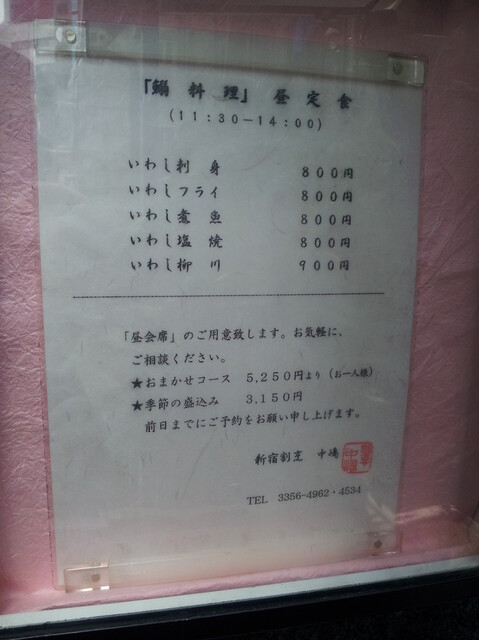 「鰯 料 理」 昼 定 食
(11:30－14:00)
いわし刺 身 800円
いわしフライ 800円
いわし煮 魚 800円
いわし塩 焼 800円
いわし柳 川 900円
「昼会席」のご用意致します。お気軽に、
ご相談ください。
★おまかせコース 5,250円より (お一人様)
★季節の盛込み 3,150円
前日までにご予約をお願い申し上げます。
新宿割烹 中嶋
TEL 3356-4962・4534